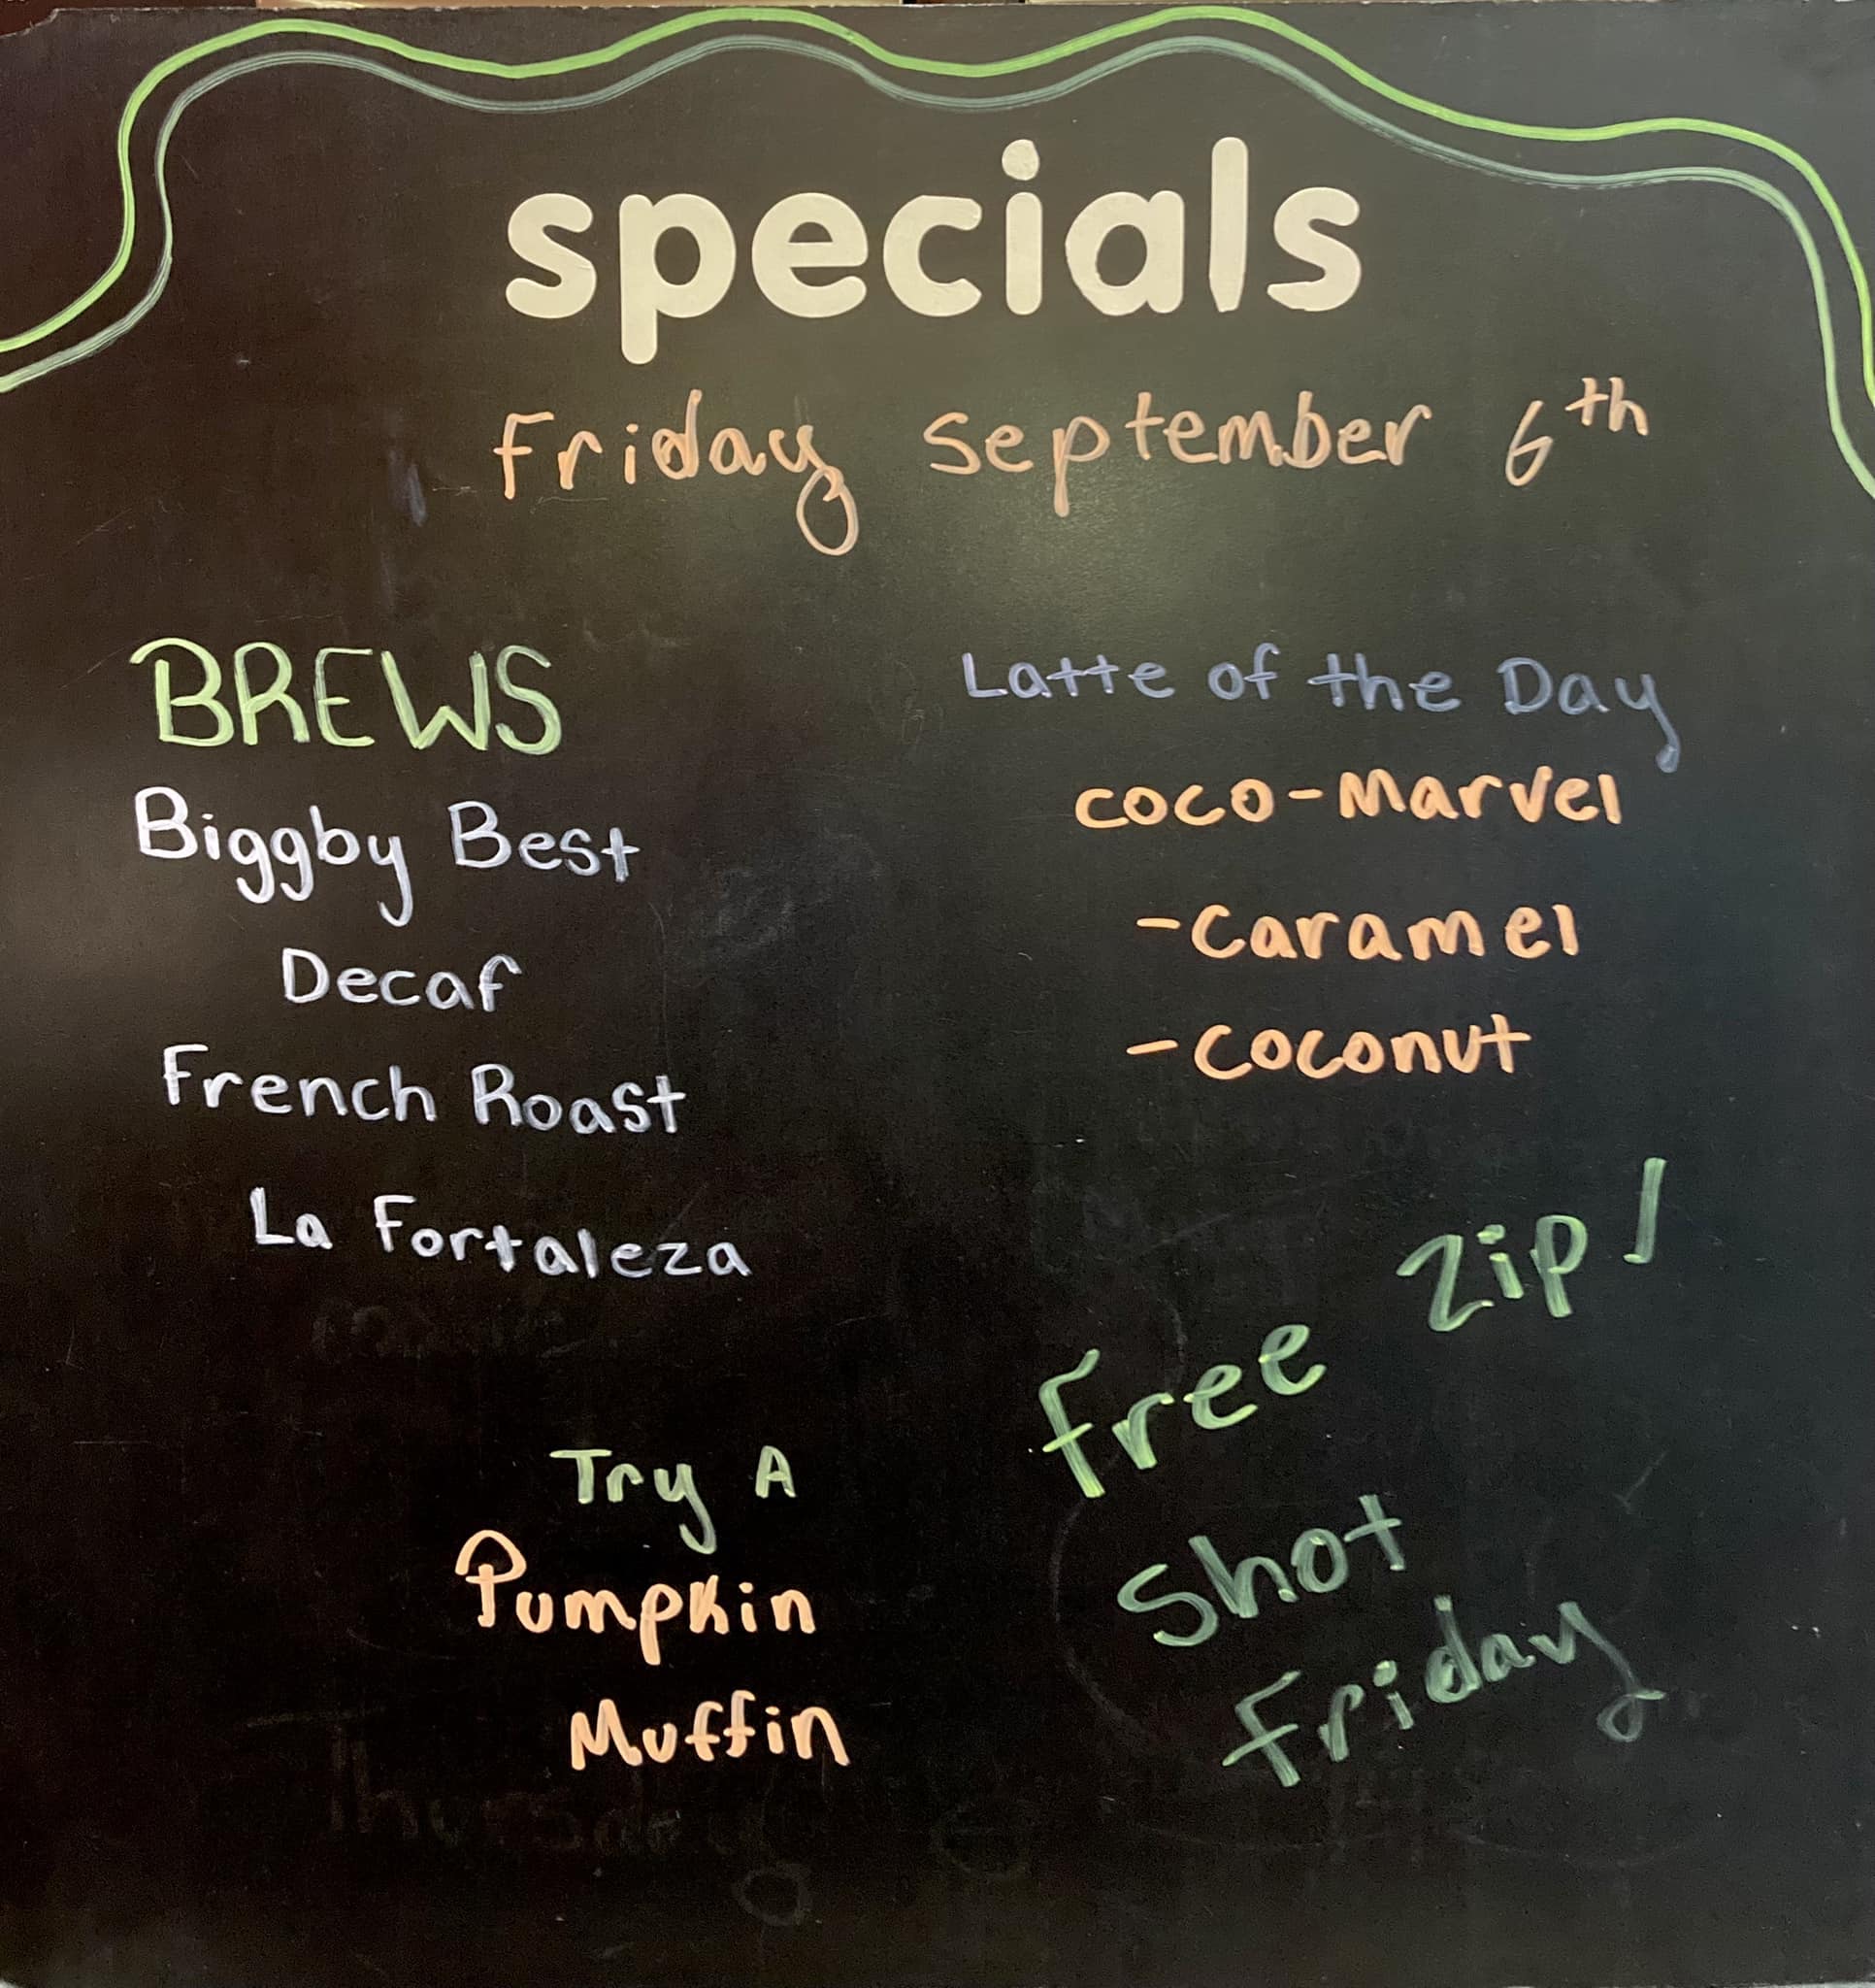 specials
Friday September 6th
BREWS
Biggby Best
Decaf
French Roast
La Fortaleza
Latte of the Day
coco-Marvel
-Caramel
-Coconut
Zip!
Free
Shot
Friday
Try A
Pumpkin
Muffin